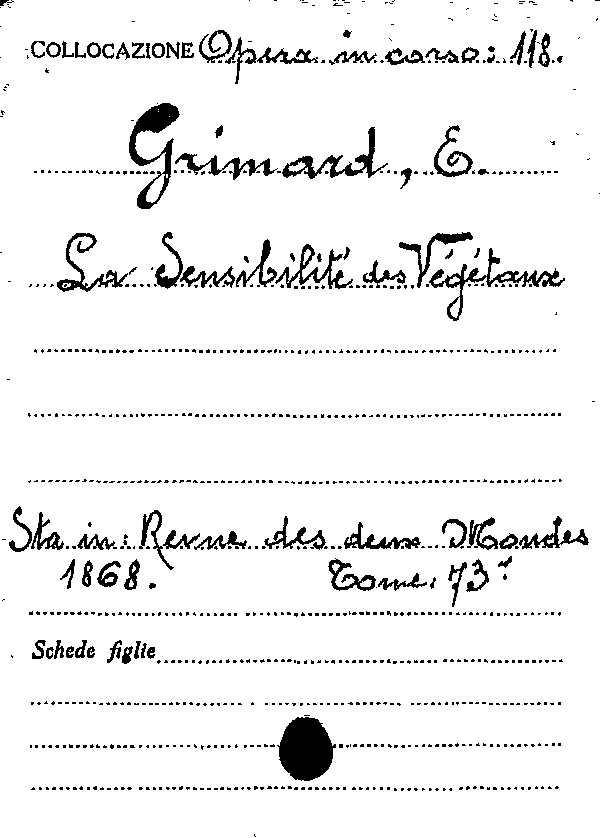 COLLOCAZIONE Opera in corso: 118.
Grimard, E.
La Sensibilité des Végétaux
Sta in: Revue des deux Mondes
1868. Tome. 73.
Schede figlie